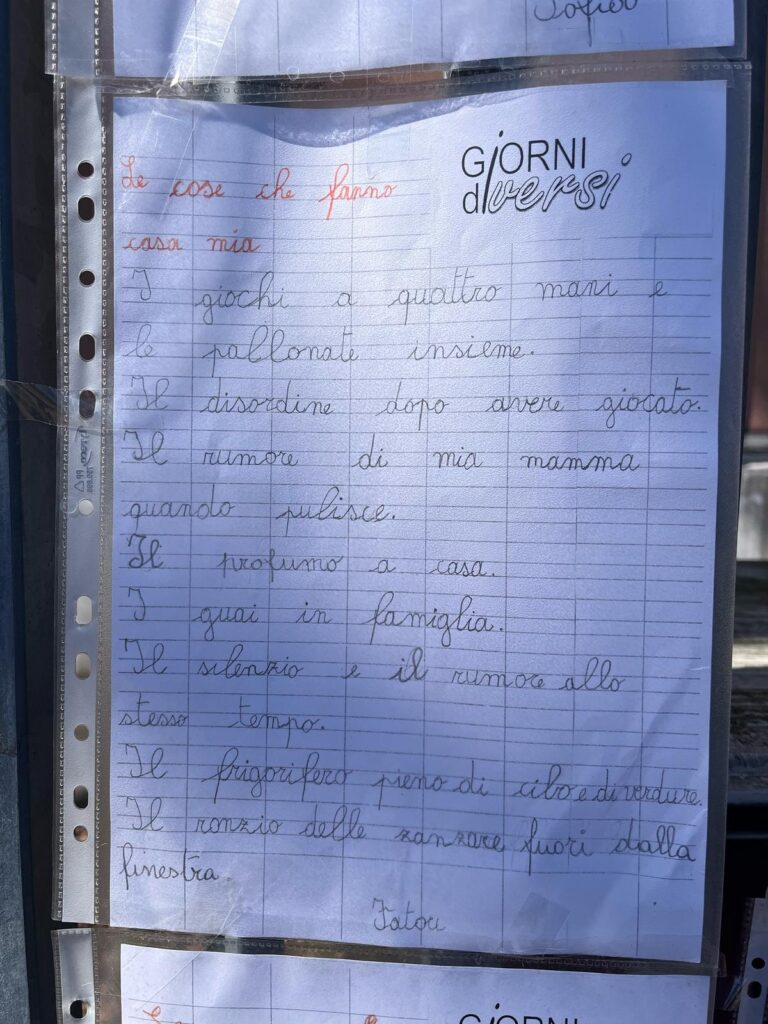 Sofia
GiORNI
diversi
Le cose che fanno
casa mia
I giochi a quattro mani e
le pallonate insieme.
Il disordine dopo avere giocato.
Il rumore di mia mamma
quando pulisce.
Il profumo a casa.
I guai in famiglia.
Il silenzio e il rumore allo
stesso tempo.
Il frigorifero pieno di cibo e di verdure.
Il ronzio delle zanzare fuori dalla
finestra.
Fatou
GiORNI